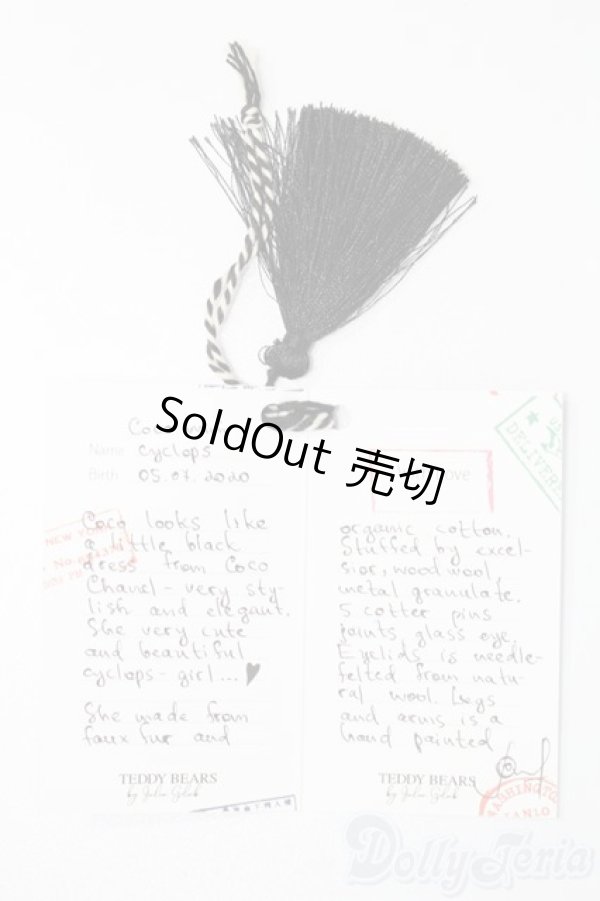 SoldOut 売切
Name Cyclops
Birth 05.07.2020
Coco looks like
a little black
dress from Coco
Chanel - very sty-
lish and elegant.
She very cute
and beautiful
cyclops-girl...
She made from
faux fur and
TEDDY BEARS
organic cotton.
Stuffed by excel-
sior, wood wool,
metal granulate.
5 cotter pins
joints, glass eye.
Eyelids is needle-
felted from natu-
ral wool. Legs
and arms is a
hand painted
TEDDY BEARS
DELIVERE
NEW YORK
DollyTeria